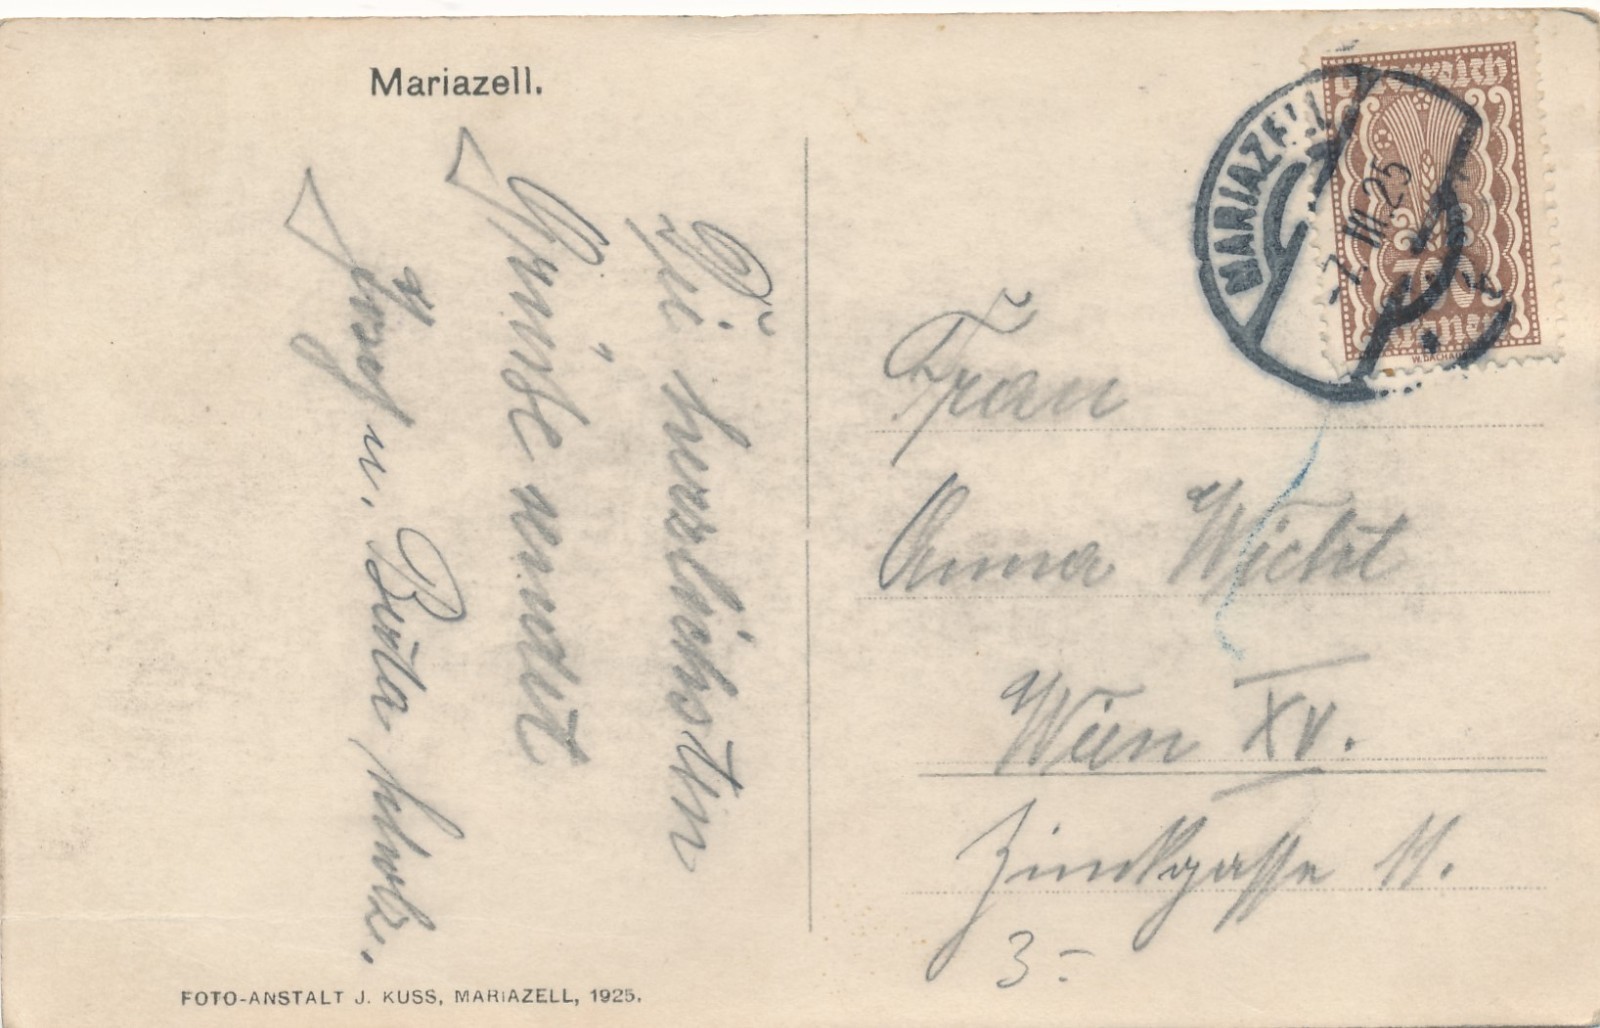 Mariazell.
Die herzlichsten
Grüße sendet
Josef u. Berta
FOTO-ANSTALT J. KUSS, MARIAZELL, 1925.
Österreich
300
Kronen
W. DACHAUER
MARIAZELL
7. VII. 25
Frau
Anna Wicht
Wien XV.
Zinckgasse 11.
3-